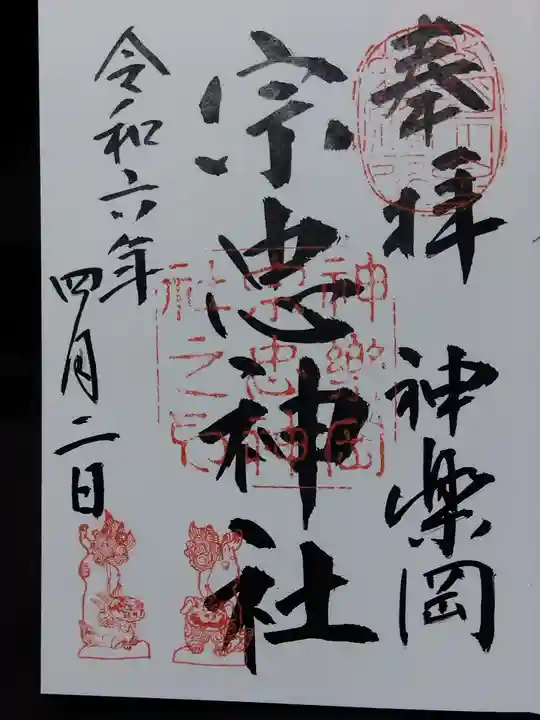 奉拝
神楽岡
宗忠神社
令和六年
四月二日
神樂岡
宗忠神
社之印